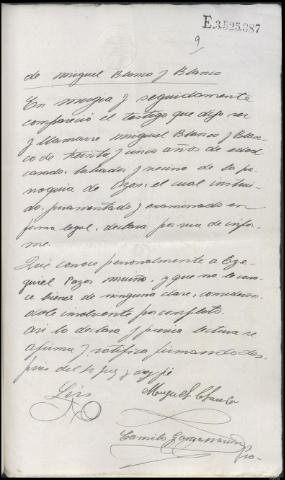 E3525,387
9
de Miguel Blanco y Blanco
En Mugia y seguidamente
compareció el testigo que dijo ser
y llamarse Miguel Blanco y Blan-
co de treinta y cinco años de edad
casado, labrador y vecino de la pa-
rroquia de Ozon, el cual instrui-
do, juramentado y examinado en
forma legal, declara por via de infor-
me.
Que conoce personalmente a Eze-
quiel Pazos Muiño, y que no le cono-
ce bienes de ninguna clase, consideran-
dole insolvente por completo.
Asi lo declara y previa lectura se
afirma y ratifica firmando des-
pues del Sr Juez y doy fé
Miguel Blanco
Camilo